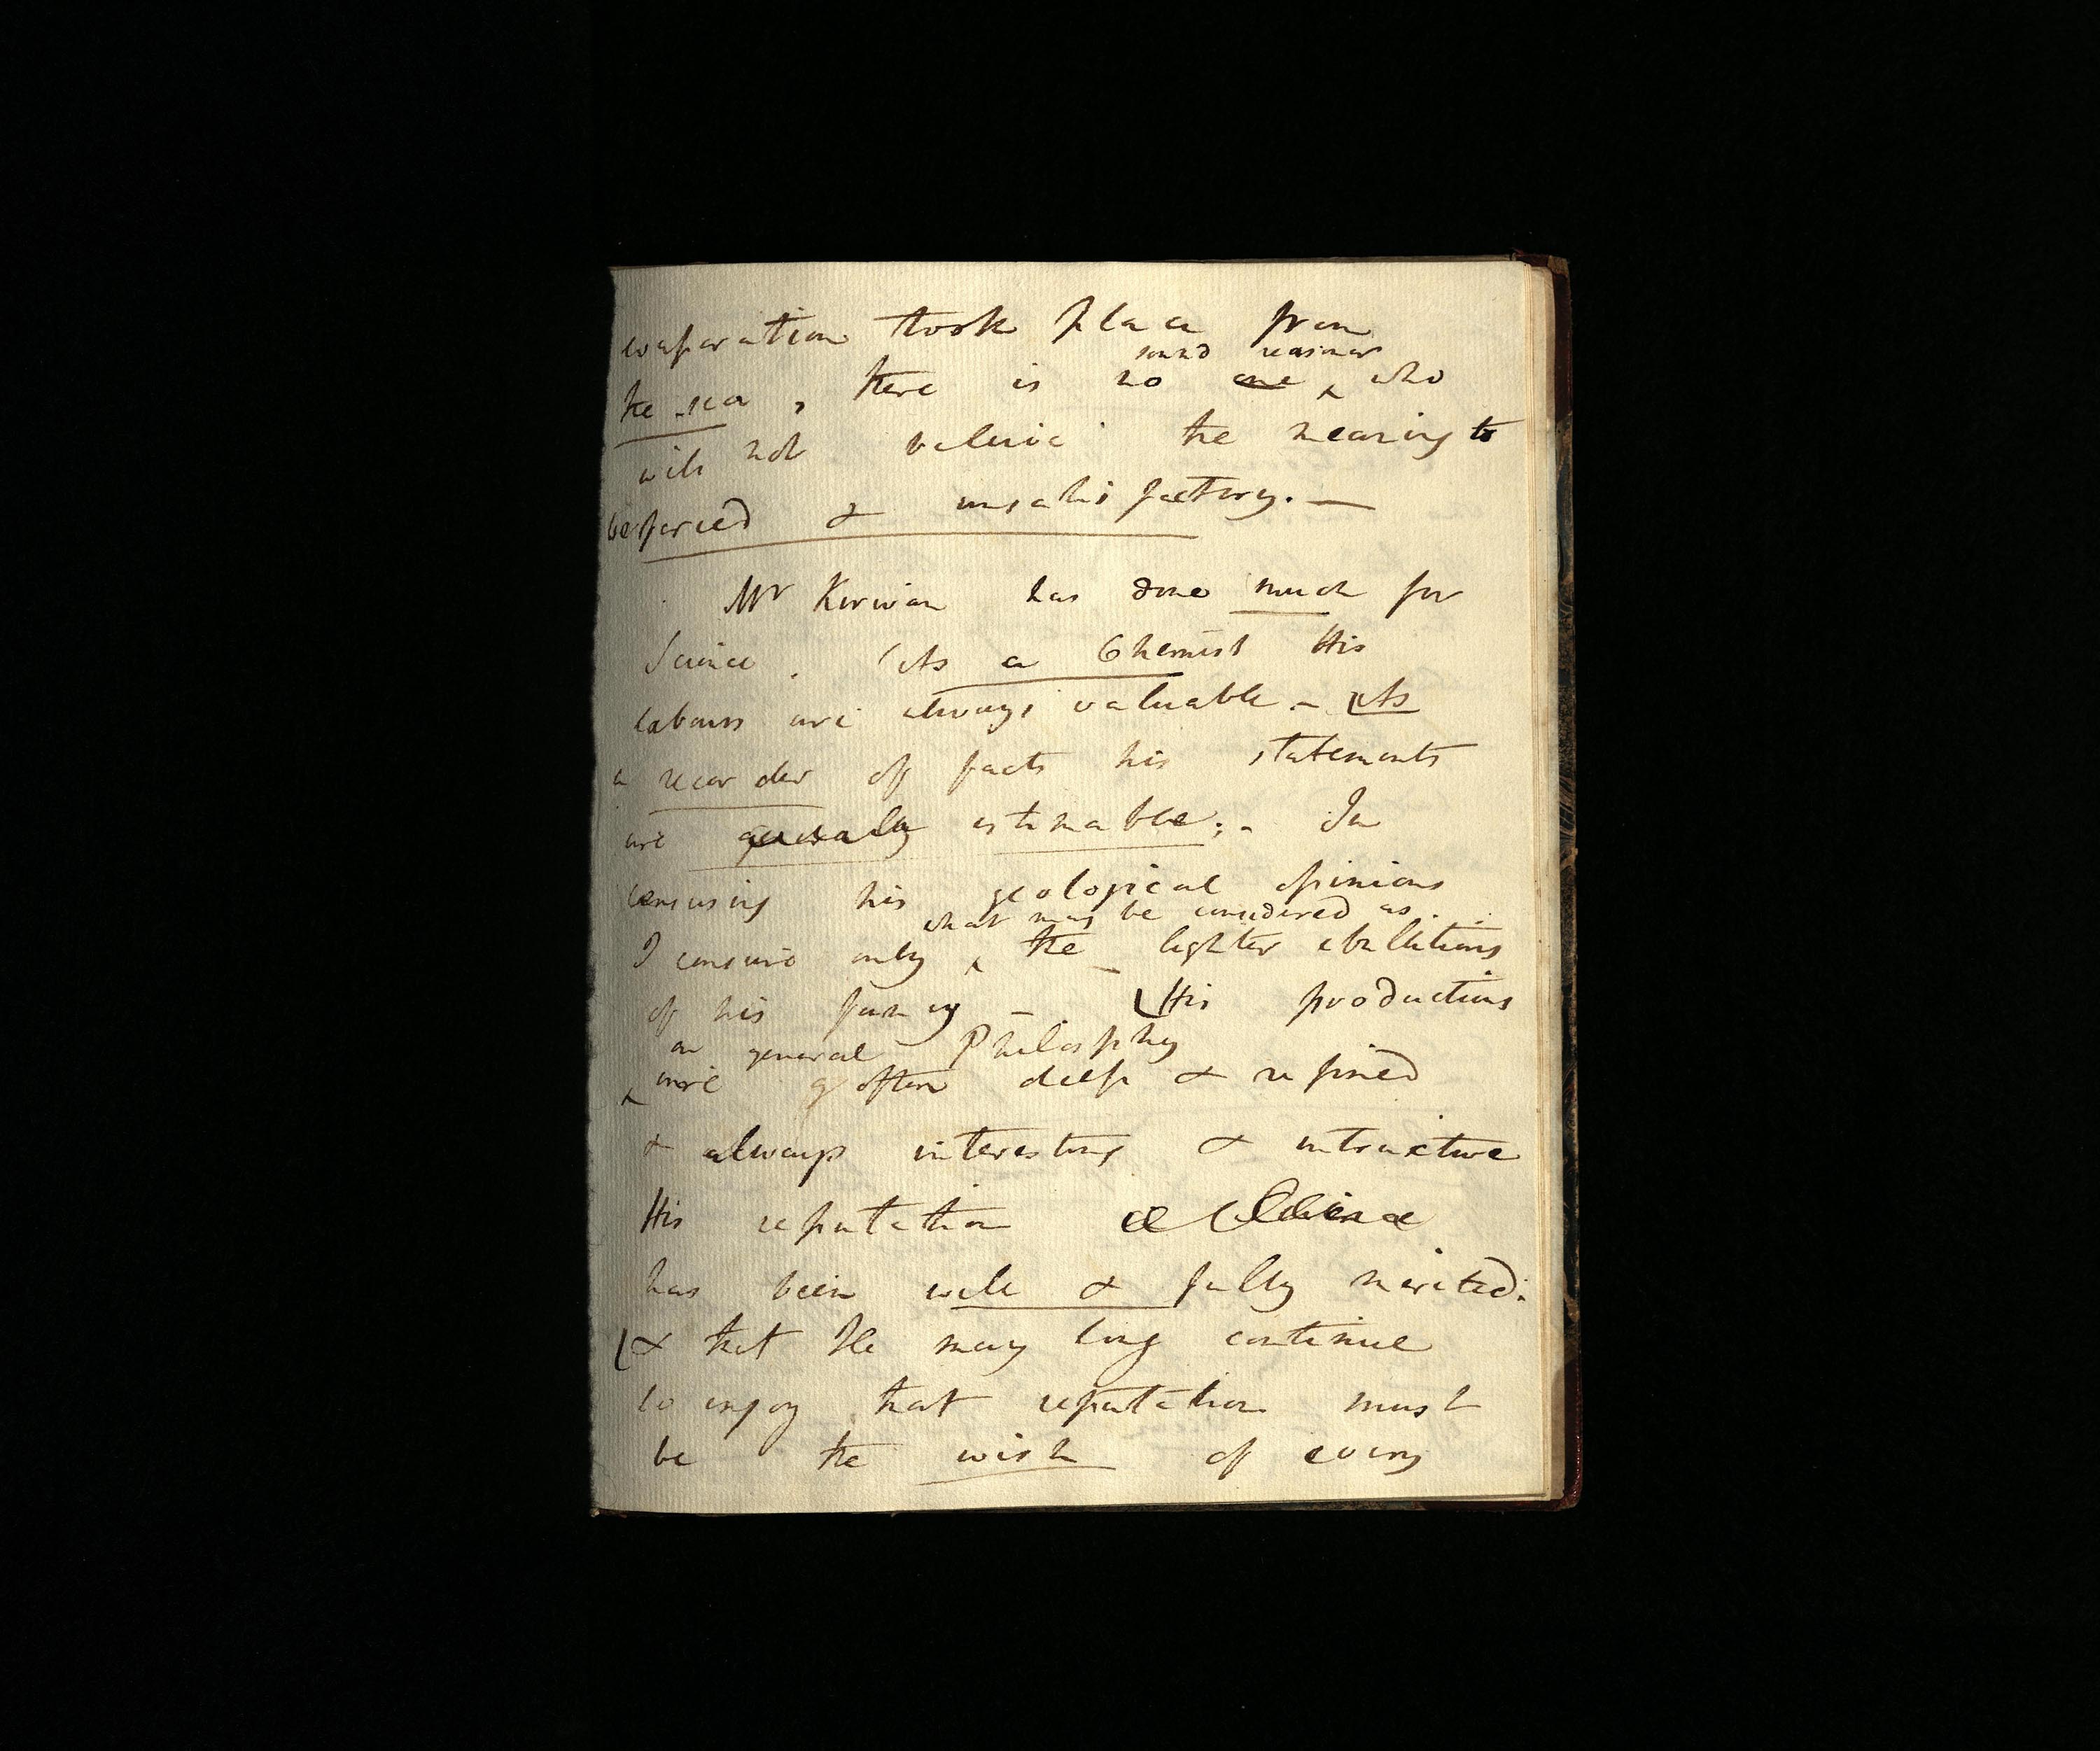 evaporation took place from
sound reasoner
the sea, there is no one ^ who
will not believe the meaning to
be forced & unsatisfactory. —
Mr Kirwan has done much for
Science. (As a Chemist His
labours are always valuable. - (As
a recorder of facts his statements
are generally estimable; - In
censuring his geological opinions
what may be considered as
I censure only ^ the lighter ebullitions
of his fancy - (His productions
on general Philosphy
^ are often deep & refined
& always interesting & intructive
His reputation
has been well & fully merited.
(& that He may long continue
to enjoy that reputation must
be the wish of every